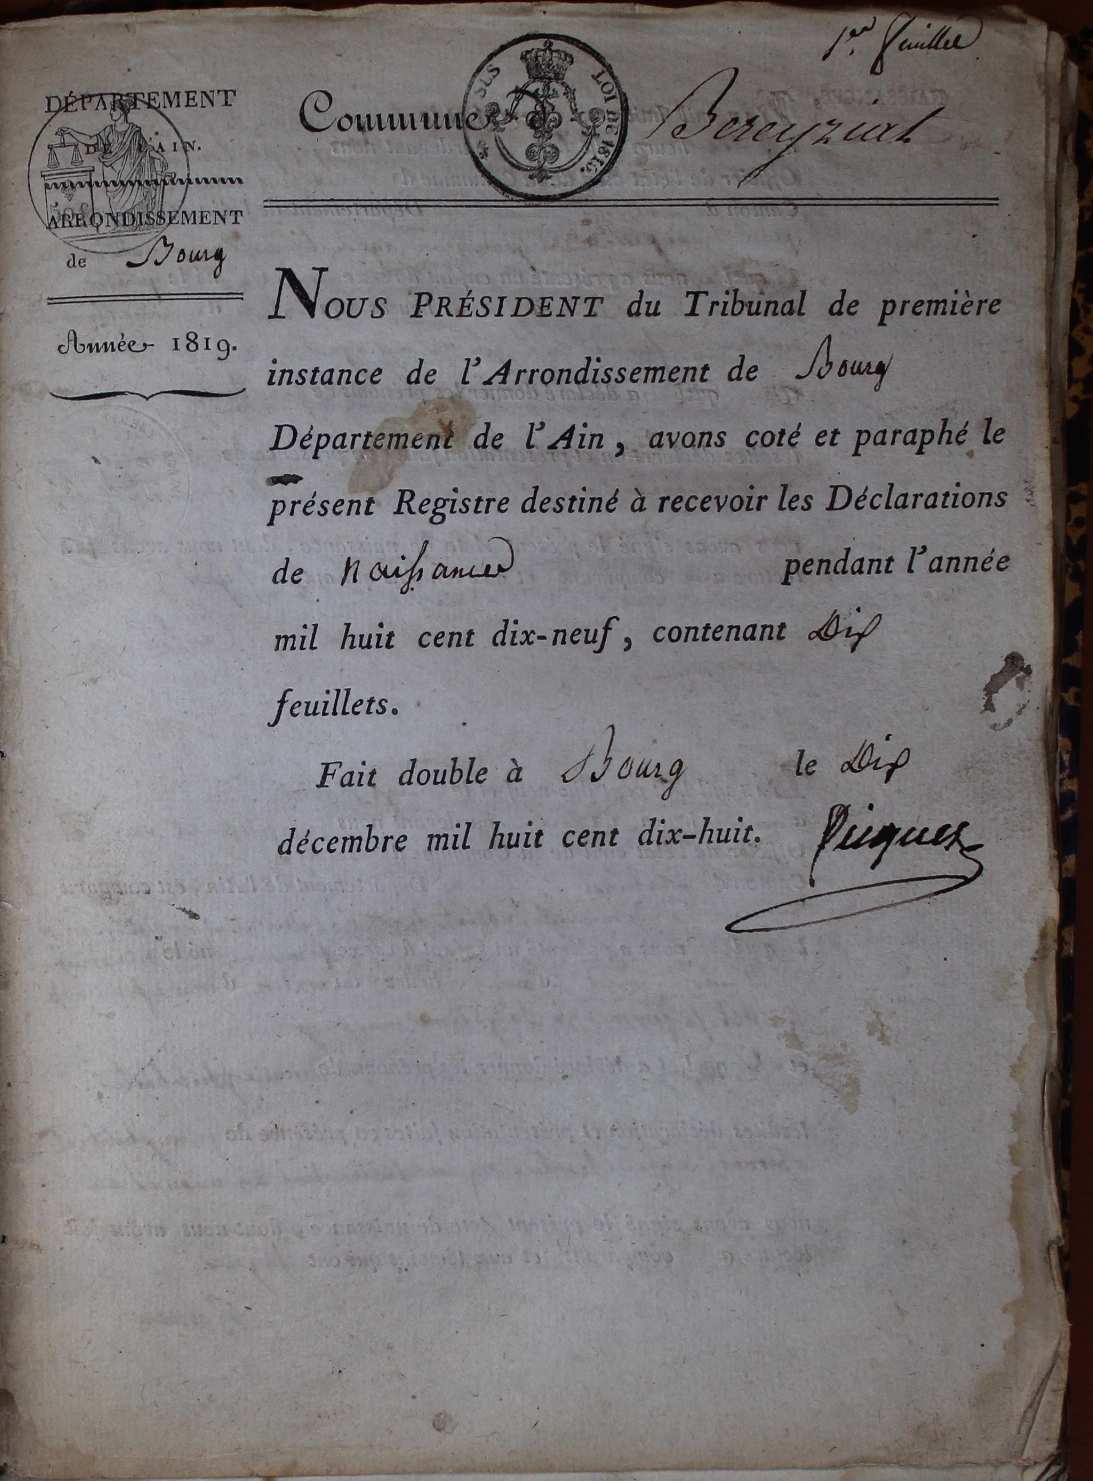 1er feuillet
DÉPARTEMENT
DE L'AIN.
ARRONDISSEMENT
de Bourg
Année 1819.
Commune de Bereyziat
LOI DE 1816.
NOUS PRÉSIDENT du Tribunal de première
instance de l'Arrondissement de Bourg
Département de l'Ain, avons coté et paraphé le
présent Registre destiné à recevoir les Déclarations
de Naissances pendant l'année
mil huit cent dix-neuf, contenant Dix
feuillets.
Fait double à Bourg le Dix
décembre mil huit cent dix-huit.